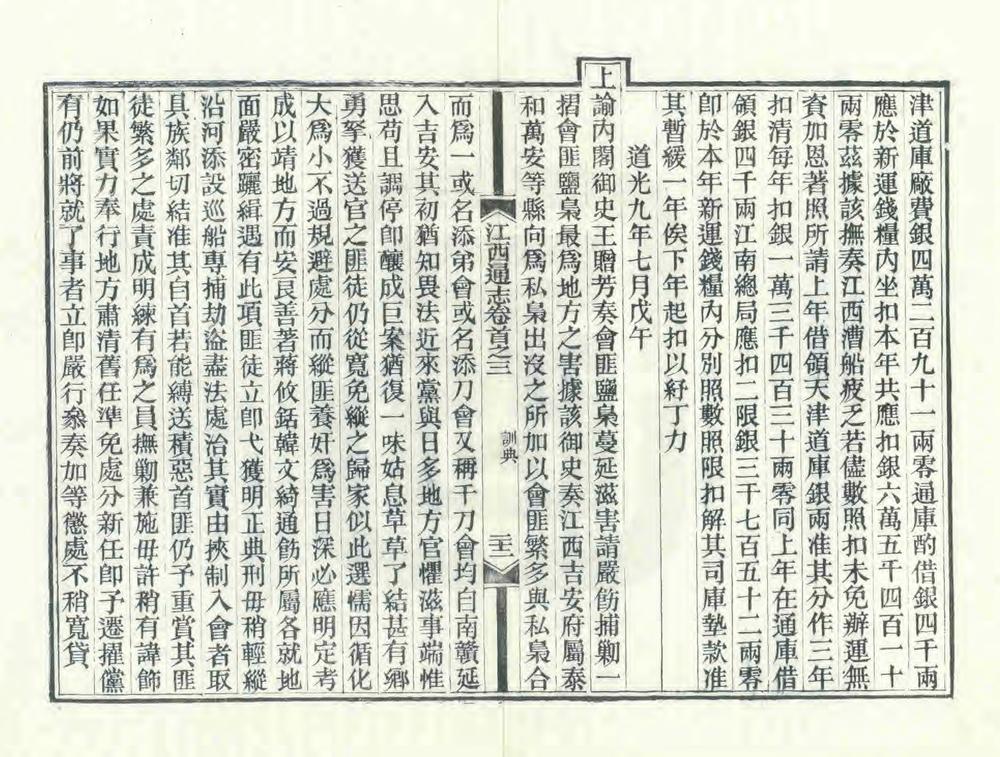 津道庫廠費銀四萬二百九十一兩零通庫酌借銀四千兩
應於新運錢糧內坐扣本年共應扣銀六萬五千四百一十
兩零茲據該撫奏江西漕船疲乏若儘數照扣未免辦運無
資加恩著照所請上年借領天津道庫銀兩准其分作三年
扣清每年扣銀一萬三千四百三十兩零同上年在通庫借
領銀四千兩江南總局應扣二限銀三千七百五十二兩零
卽於本年新運錢糧內分別照數照限扣解其司庫墊款准
其暫緩一年俟下年起扣以紓丁力
道光九年七月戊午
上諭內閣御史王贈芳奏會匪鹽梟蔓延滋害請嚴飭捕勦一
摺會匪鹽梟最爲地方之害據該御史奏江西吉安府屬泰
和萬安等縣向爲私梟出沒之所加以會匪繁多與私梟合
江西通志卷首之三
訓典
二十二
而爲一或名添弟會或名添刀會又稱千刀會均自南贛延
入吉安其初猶知畏法近來黨與日多地方官懼滋事端惟
思苟且調停卽釀成巨案猶復一味姑息草草了結甚有鄉
勇拏獲送官之匪徒仍從寬免縱之歸家似此選懦因循化
大爲小不過規避處分而縱匪養奸爲害日深必應明定考
成以靖地方而安良善著蔣攸銛韓文綺通飭所屬各就地
面嚴密躧緝遇有此項匪徒立卽弋獲明正典刑毋稍輕縱
沿河添設巡船專捕劫盜盡法處治其實由挾制入會者取
具族鄰切結准其自首若能縛送積惡首匪仍予重賞其匪
徒繁多之處責成明練有爲之員撫勦兼施毋許稍有諱飾
如果實力奉行地方肅清舊任準免處分新任卽予遷擢儻
有仍前將就了事者立卽嚴行叅奏加等懲處不稍寬貸